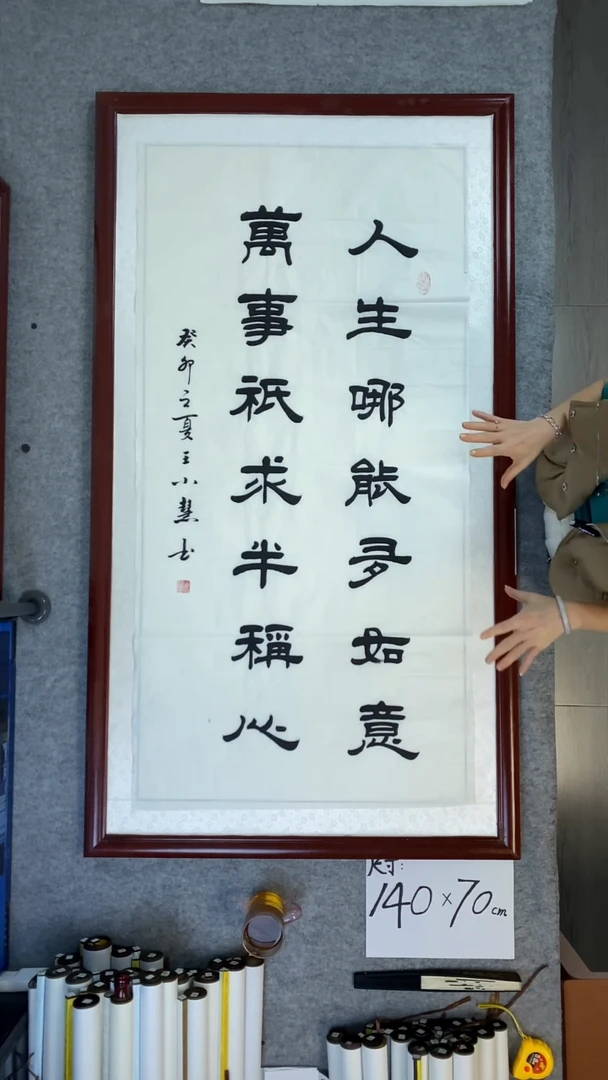 人生哪能多如意
萬事祇求半稱心
癸卯之夏王小慧书
尺寸:
140×70cm